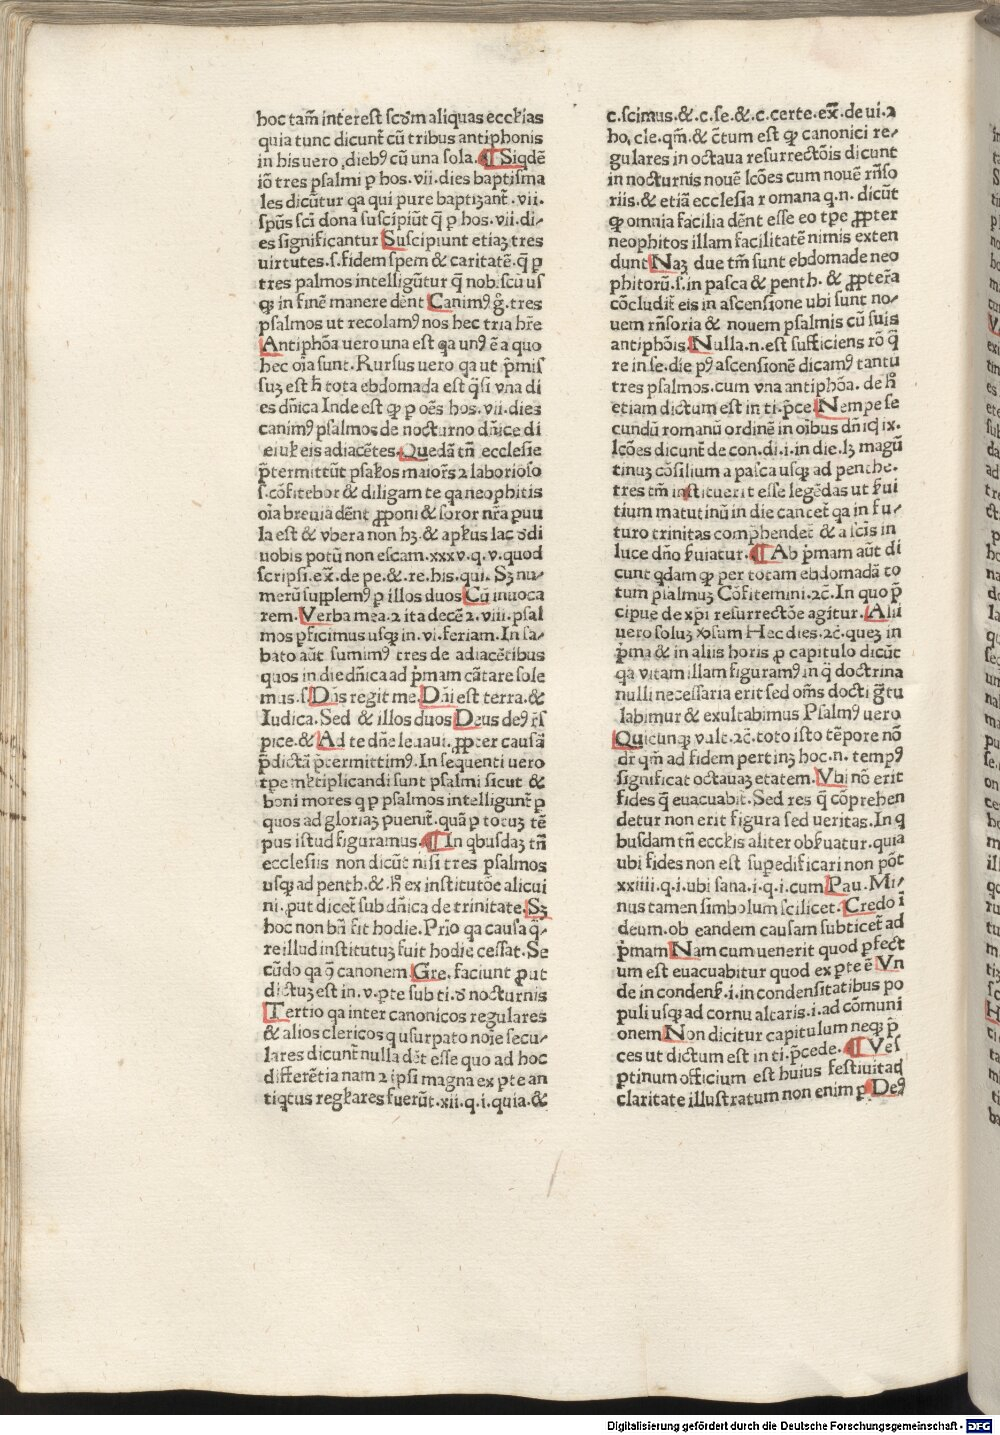 hoc tam̄ interest scd̄m aliquas eccl̄ias
quia tunc dicunt̄ cū tribus antiphonis
in his uero dieb⁹ cū una sola. ¶ Siqdē
iō tres psalmi p̱ hos. vii. dies baptisma
les dicūtur qa qui pure baptizant̄. vii.
sp̄us sc̄i dona suscipiūt q̄ p̱ hos. vii. di-
es significantur Suscipiunt etiaꝫ tres
uirtutes. s. fidem spem & caritatē. q̄ p̱
tres psalmos intelligūtur q̄ nobiscū us
qꝫ in finē manere dēnt Canim⁹ g̊. tres
psalmos ut recolam⁹ nos hec tria hr̄e
Antiphōa uero una est qa un⁹ ē a quo
hec oīa sunt. Rursus uero qa ut p̄mis
suꝫ est h̄ tota ebdomada est q̄si vna di
es dn̄ica Inde est qꝫ p̱ oēs hos. vii. dies
canim⁹ psalmos de nocturno dn̄ice di
ei uꝉ eis adiacētes. Quedā tn̄ ecclesie
p̄termittūt psaꝉos maior̄s ⁊ laborioso
s. cōfitebor & diligam te qa neophitis
oīa breuia dēnt ꝓponi & soror nr̄a puu
la est & vbera non hꝫ. & apꝉus lac dedi
uobis potū non escam. xxxv. q. v. quod
scripsi. ex̄. de pe. & .re. his. qui. Sꝫ nu-
merū supplem⁹ p̱ illos duos Cū inuoca
rem. Verba mea. ⁊ ita decē ⁊ .viii. psal
mos p̱ficimus usqꝫ in. vi. feriam. In sa-
bato aūt sumim⁹ tres de adiacētibus
quos in die dn̄ica ad p̄mam cātare sole
mus. s. Dn̄s regit me. Dn̄i est terra. &
Iudica. Sed & illos duos Deus de⁹ r̄s
pice. & Ad te dn̄e leuaui. ꝓpter causā
p̄dictā p̄termittim⁹. In sequenti uero
tp̄e mꝉtiplicandi sunt psalmi sicut &
boni mores q p̱ psalmos intelligunt̄ p̱
quos ad gloriaꝫ puenit̄. quā p̱ totuꝫ tē
pus istud figuramus. ¶ In qbusdaꝫ tn̄
ecclesiis non dicūt nisi tres psalmos
usqꝫ ad penth. & h̄ ex institutōe alicui
ni. put dicet̄ sub dn̄ica de trinitate. Sꝫ
hoc non bn̄ fit hodie. Prīo qa causa q̄-
re illud institutuꝫ fuit hodie cessat. Se
cūdo qa q̄ canonem Gre. faciunt ꝓut
dictuꝫ est in. v. p̱te sub ti. de nocturnis
Tertio qa inter canonicos regulares
& alios clericos q usurpato noīe secu-
lares dicunt̄ nulla dēt esse quo ad hoc
differētia nam ⁊ ipsi magna ex p̱te an
tiqtus regꝉares fuerūt. xii. q. i. quia. &
c. scimus. & .c. se. & .c. certe. ex̄. de ui. ⁊
ho. cle. qm̄. & c̄tum est qꝫ canonici re-
gulares in octaua resurrectōis dicunt
in nocturnis nouē lc̄ōes cum nouē rn̄so
riis. & etiā ecclesia romana q. n. dicūt
qꝫ omnia facilia dēnt esse eo tp̄e ꝓpter
neophitos illam facilitatē nimis exten
dunt Naꝫ due tm̄ sunt ebdomade neo
phitorū. s. in pasca & penth. & ꝓpter̄a
cōcludit̄ eis in ascensione ubi sunt no-
uem rn̄soria & nouem psalmis cū suis
antiphōis. Nulla. n. est sufficiens rō q̄
re in se. die p⁹ ascensionē dicam⁹ tantū
tres psalmos. cum vna antiphōa. de h̄
etiam dictum est in ti. p̄ce Nempe se
cundū romanū ordinē in oībus dn̄icꝭ ix.
lc̄ōes dicunt̄ de con. di. i. in die. lꝫ magū
tinuꝫ cōsilium a pasca usqꝫ ad penthe.
tres tm̄ instituerit esse legēdas ut ẜui
tium matutinū in die cantet̄ qa in fu-
turo trinitas comp̄hendet̄ & a sc̄is in
luce dn̄o ẜuiatur. ¶ Ab p̄mam aūt di
cunt qdam qꝫ per totam ebdomadā to
tum psalmuꝫ Cōfitemini. ⁊c̄. In quo p̄
cipue de xp̄i resurrectōe agitur. Alii
uero soluꝫ v̄sum Hec dies. ⁊c̄. queꝫ in
p̄ma & in aliis horis p̱ capitulo dicūt
qa vitam illam figuram⁹ in q̄ doctrina
nulli necessaria erit sed om̄s docti g̃tu
labimur & exultabimus Psalm⁹ uero
Quicunqꝫ vult. ⁊c̄. toto isto tēpore nō
dr̄ qm̄ ad fidem pertinꝫ hoc. n. temp⁹
significat octauaꝫ etatem. Vbi nō erit
fides q̄ euacuabit̄. Sed res q̄ cōprehen
detur non erit figura sed ueritas. In q
busdam tn̄ eccꝉis aliter obẜuatur. quia
ubi fides non est suꝑedificari non pōt
xxiiii. q. i. ubi sana. i. q. i. cum Pau. Mi-
nus tamen simbolum scilicet. Credo ī
deum. ob eandem causam subticet̄ ad
p̄mam Nam cum uenerit quod p̱fect
um est euacuabitur quod ex p̱te ē Vn
de in condenẜ. i. in condensitatibus po
puli usqꝫ ad cornu altaris. i. ad cōmuni
onem Non dicitur capitulum neqꝫ p̄
ces ut dictum est in ti. p̄cede. ¶ Ves
p̱tinum officium est huius festiuitaꝭ
claritate illustratum non enim p̱ De⁹
Digitalisierung gefördert durch die Deutsche Forschungsgemeinschaft - DFG